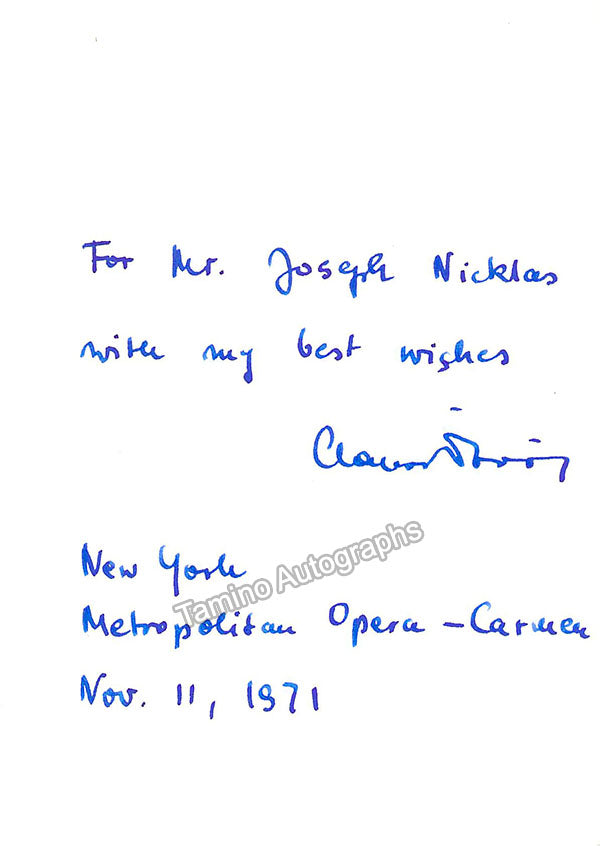 For Mr. Joseph Nicklas
with my best wishes
New York
Tamino Autographs
Metropolitan Opera – Carmen
Nov. 11, 1971